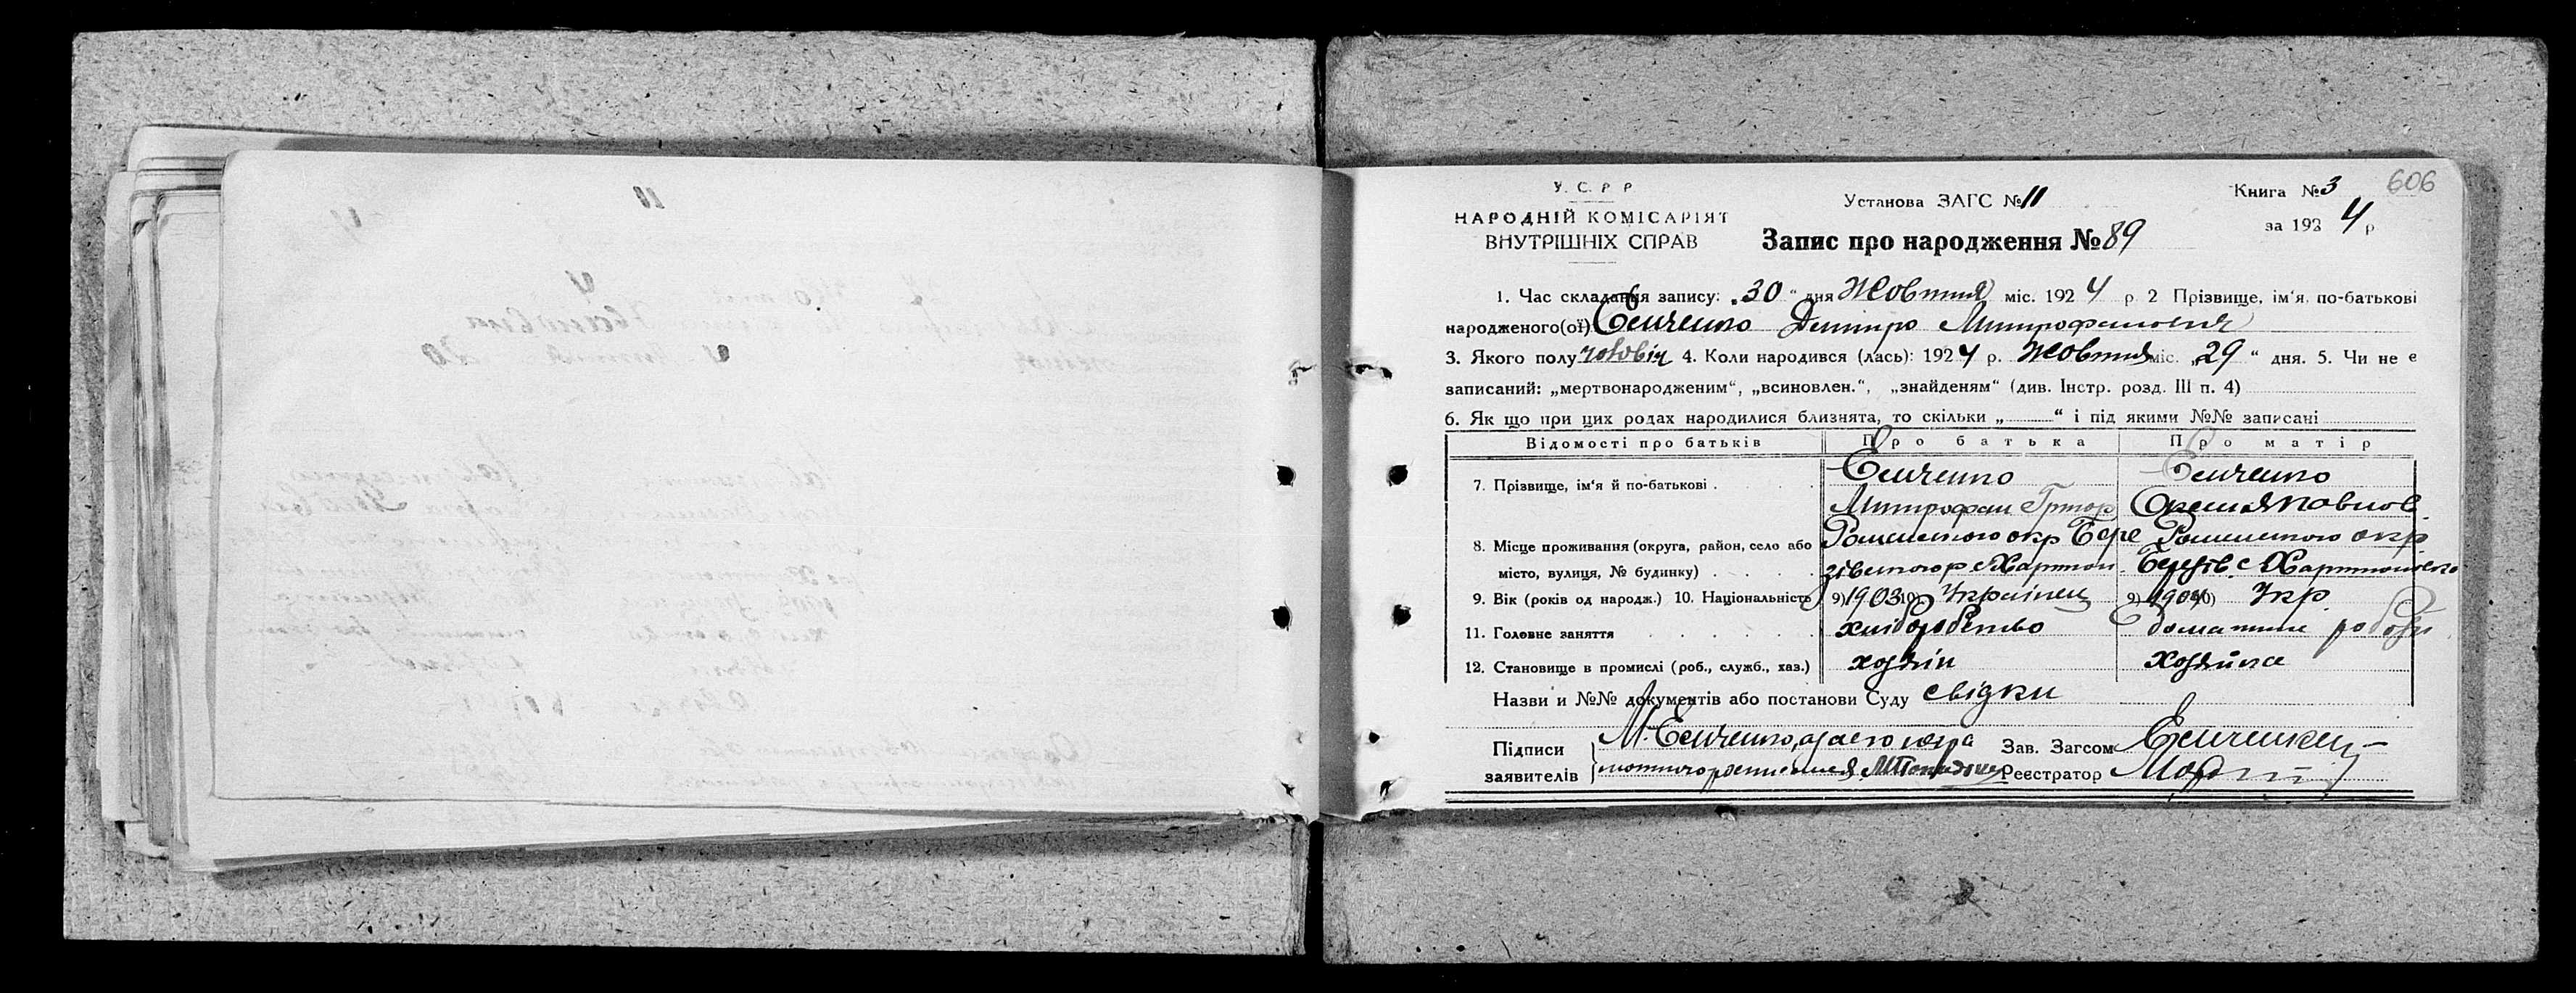 У. С. Р Р
НАРОДНІЙ КОМІСАРІЯТ
ВНУТРІШНІХ СПРАВ
Установа ЗАГС № 11
Книга № 3
606
за 1924 р
Запис про народження № 89
1. Час складання запису: „30“ дня Жовтня міс. 1924 р 2 Прізвище, ім‘я, по-батькові
народженого(ої) Сенченко Дмитро Митрофанович
3. Якого полу чоловіч 4. Коли народився (лась): 1924 р. Жовтня міс. „29“ дня. 5. Чи не є
записаний: „мертвонародженим“, „всиновлен.“, „знайденям“ (див. Інстр. розд. III п. 4)
6. Як що при цих родах народилися близнята, то скільки „ “ і під якими №№ записані
Відомості про батьків Про батька Про матір
7. Прізвище, ім‘я й по-батькові . Сенченко Сенченко
Митрофан Григор
8. Місце проживання (округа, район, село або Роменського окр Бере Роменського окр
місто, вулиця, № будинку) зівського р с Березів. с
9. Вік (років од народж.) 10. Національність 9) 1903 10) Українец 9) 1904 10) Укр.
11. Головне заняття хліборобство домашне
12. Становище в промислі (роб., служб., хаз.) хозяін хозяйка
Назви и №№ документів або постанови Суду свідки
Підписи М. Сенченко, Зав. Загсом Сенченко
заявителів Реєстратор